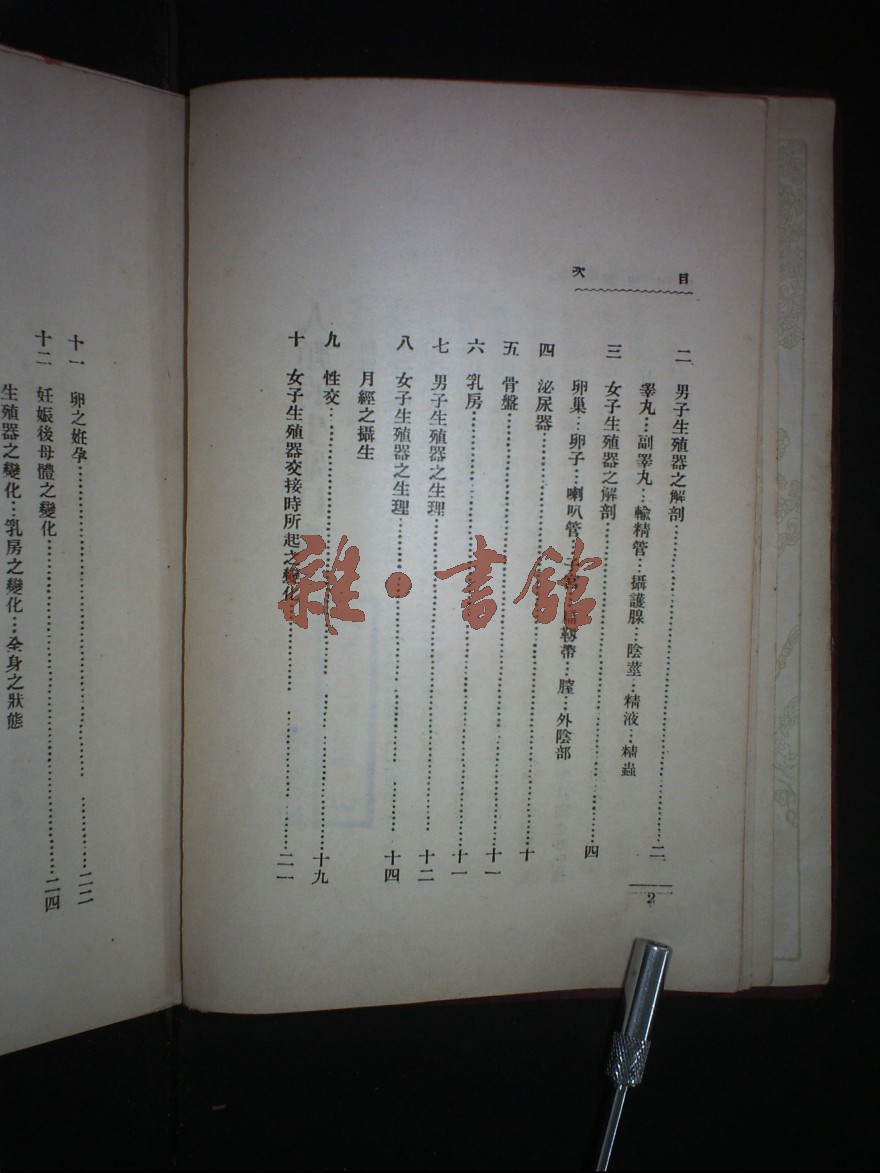 目次
二 男子生殖器之解剖……二
睪丸…副睪丸…輸精管…攝護腺…陰莖…精液…精蟲
三 女子生殖器之解剖……四
卵巢…卵子…喇叭管…子宮…靱帶…膣…外陰部
四 泌尿器……十
五 骨盤……十一
六 乳房……十一
七 男子生殖器之生理……十二
八 女子生殖器之生理……十四
月經之攝生
九 性交……十九
十 女子生殖器交接時所起之變化……二一
2
十一 卵之姙孕……二二
十二 妊娠後母體之變化……二四
生殖器之變化…乳房之變化…全身之狀態
雜·書館